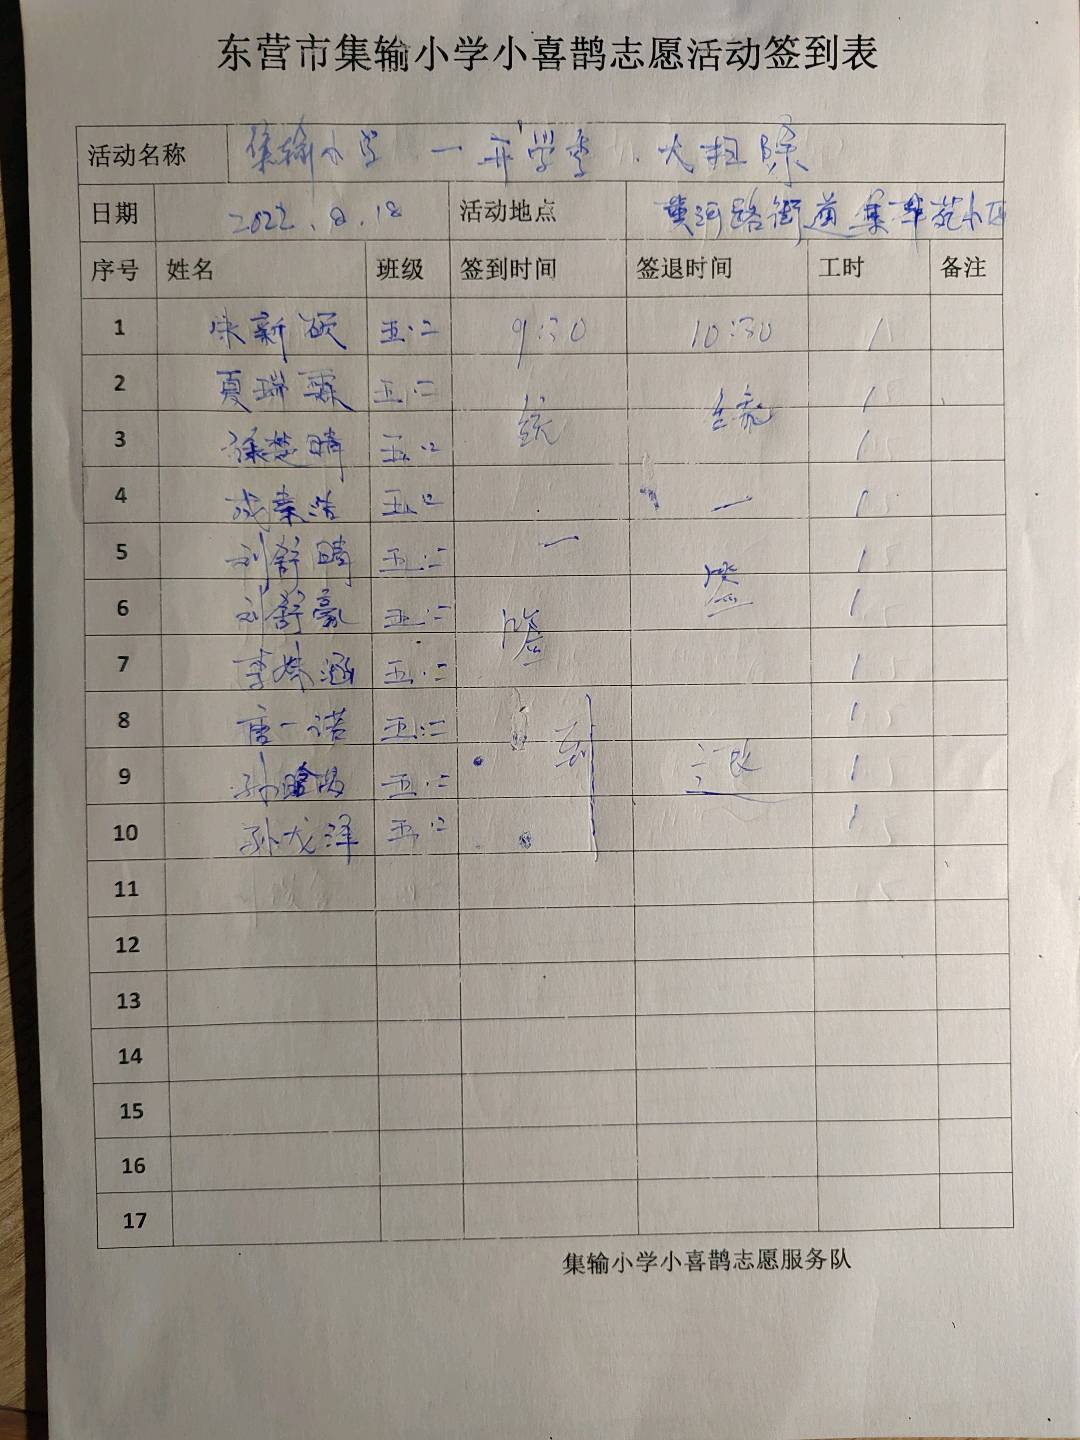 东营市集输小学小喜鹊志愿活动签到表
活动名称 集输小学 一 开学季、大扫除
日期 2022.8.18 活动地点 黄河路街道集萃苑小区
序号 姓名 班级 签到时间 签退时间 工时 备注
1 新硕 五.二 9:30 10:30 1
2 夏瑞霖 五.二 统 统 1
3 徐楚晴 五.二 1
4 秦浩 五.二 一 1
5 刘舒晴 五.二 一 1
6 刘舒豪 五.二 签 签 1
7 李涵 五.二 1
8 唐一诺 五.二 到 1
9 孙 五.二 退 1
10 孙龙泽 五.二 1
11
12
13
14
15
16
17
集输小学小喜鹊志愿服务队